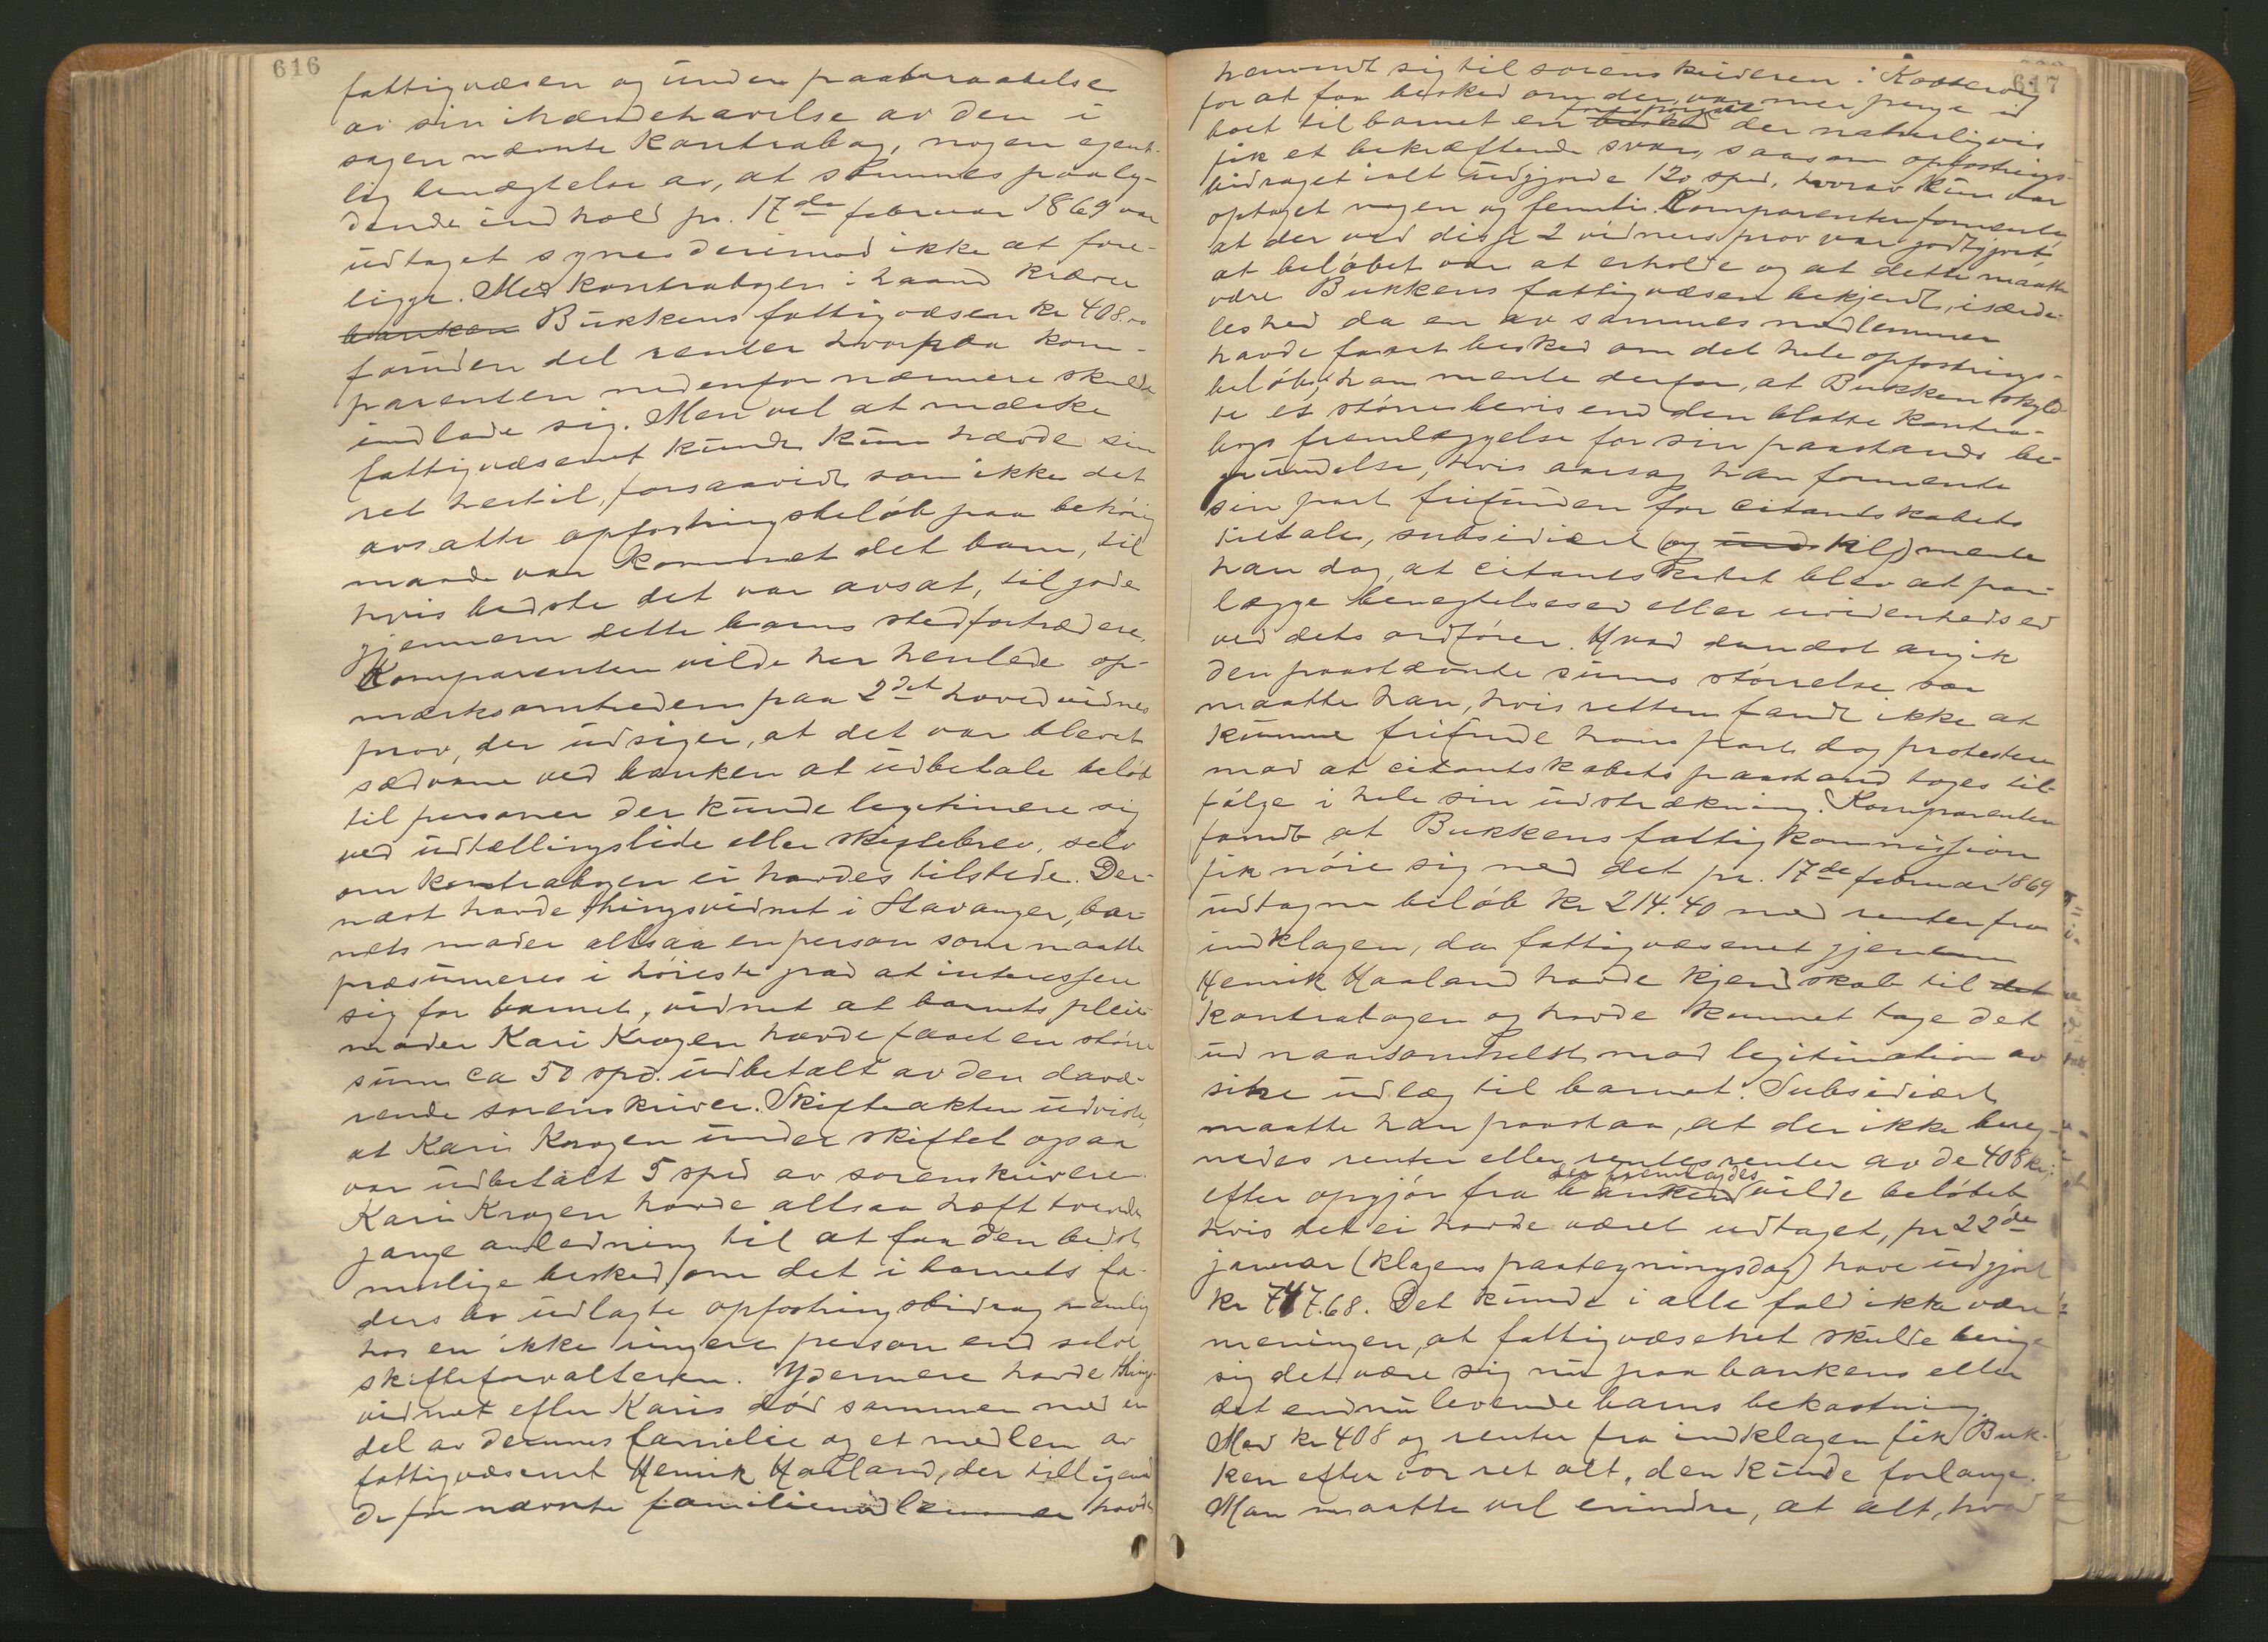 616
fattigvæsen og under paaberaabelse
av sin ihændehavelse av den i
sagen nævnte kontrabog, nogen egent-
lig benægtelse av, at sammes paaly-
dende indhold pr. 17de februar 1869 var
udtaget synes derimod ikke at fore-
ligge. Med kontrabogen i haand kræver
banken Bukkens fattigvæsen kr 408.00
foruden del renter hvorpaa kom-
parenten nedenfor nærmere skulde
indlade sig. Men vel at mærke
fattigvæsenet kunde kun hævde sin
ret hertil, forsaavidt som ikke det
avsatte opfostringsbeløb paa behørig
maade var kommet det barn, til
hvis bedste det var avsat, tilgode
gjennem dette barns stedfortrædere.
Komparenten vilde her henlede op-
mærksomheden paa 2det hovedvidnes
prov, der udsiger, at det var blevet
sædvane ved banken at udbetale beløb
til personer der kunde legitimere sig
ved udtællingsliste eller skiftebrev, selv
om kontrabogen ei havdes tilstede. Der-
næst havde thingsvidnet i Stavanger, bar-
nets moder altsaa en person som maatte
præsumeres i høieste grad at interessere
sig for barnet, vidnet at barnets pleie-
moder Kari Krogen havde faaet en større
sum ca 50 spd. udbetalt av den davæ-
rende sorenskriver. Skifteakten udviste,
at Kari Krogen under skiftet ogsaa
var udbetalt 5 spd av sorenskriveren.
Kari Krogen havde altsaa havt tvende
gange anledning til at faa den bedst
mulige besked om det i barnets fa-
ders bo udlagte opfostringsbidrag nemlig
hos en ikke ringere person end selve
skifteforvalteren. Ydermere havde thing-
vidnet efter Karis død sammen med en
del av dennes familie og et medlem av
fattigvæsenet Henrik Haaland, der tilligemed
de før nævnte familiemedlemmer havde
617
henvendt sig til sorenskriveren i Kopervig
for at faa besked om der var mer penge i
boet til barnet en besked forespørgsel der naturligvis
fik et bekræftende svar, saasom opfostrings-
bidraget ialt udgjorde 120 spd, hvorav kun var
optaget nogen og femti. Komparenten formente
at der ved disse 2 vidners prov var godtgjort
at beløbet var at erholde og at dette maatte
være Bukkens fattigvæsen bekjendt, isærde-
leshed da en av sammes medlemmer
havde faaet besked om det hele opfostrings-
beløb, han mente derfor, at Bukken skyld-
te et større bevis end den blotte kontra-
bogs fremlæggelse for sin paastands be-
grundelse, hvis aarsag han formente
sin part frifunden for citantskabets
tiltale, subsidiært (og kl) mente
han dog, at citantskabet blev at paa-
lægge benegtelsesed eller uvidenhedsed
ved dets ordfører. Hvad dernæst angik
den paastævnte sums størrelse saa
maatte han, hvis retten fandt ikke at
kunne frifinde hans part dog protestere
mod at citantskabets paastand toges til-
følge i hele sin udstrækning. Komparenten
fandt at Bukkens fattigkommission
fik nøie sig med det pr. 17de februar 1869
udtagne beløb kr 214.40 med renter fra
indklagen, da fattigvæsenet gjennem
Henrik Haaland havde kjendskab til det
kontrabogen og havde kunnet tage det
ud naarsomhelst mod legitimation av
sine udlæg til barnet. Subsidiært
maatte han paastaa, at der ikke bereg-
nedes renter eller rentesrenter av de 408 kr;
efter opgjør fra banken der fremlagdes vilde beløbet
hvis det ei havde været udtaget, pr 22de
januar (klagens paategningsdag) have udgjort
kr 747.68. Det kunde i alle fald ikke være
meningen, at fattigvæsenet skulde berige
sig det være sig nu paa bankens eller
det endnu levende barns bekostning.
Med kr 408 og renter fra indklagen fik Buk-
ken efter vor ret alt, den kunde forlange.
Man maatte vel erindre, at alt, hvad